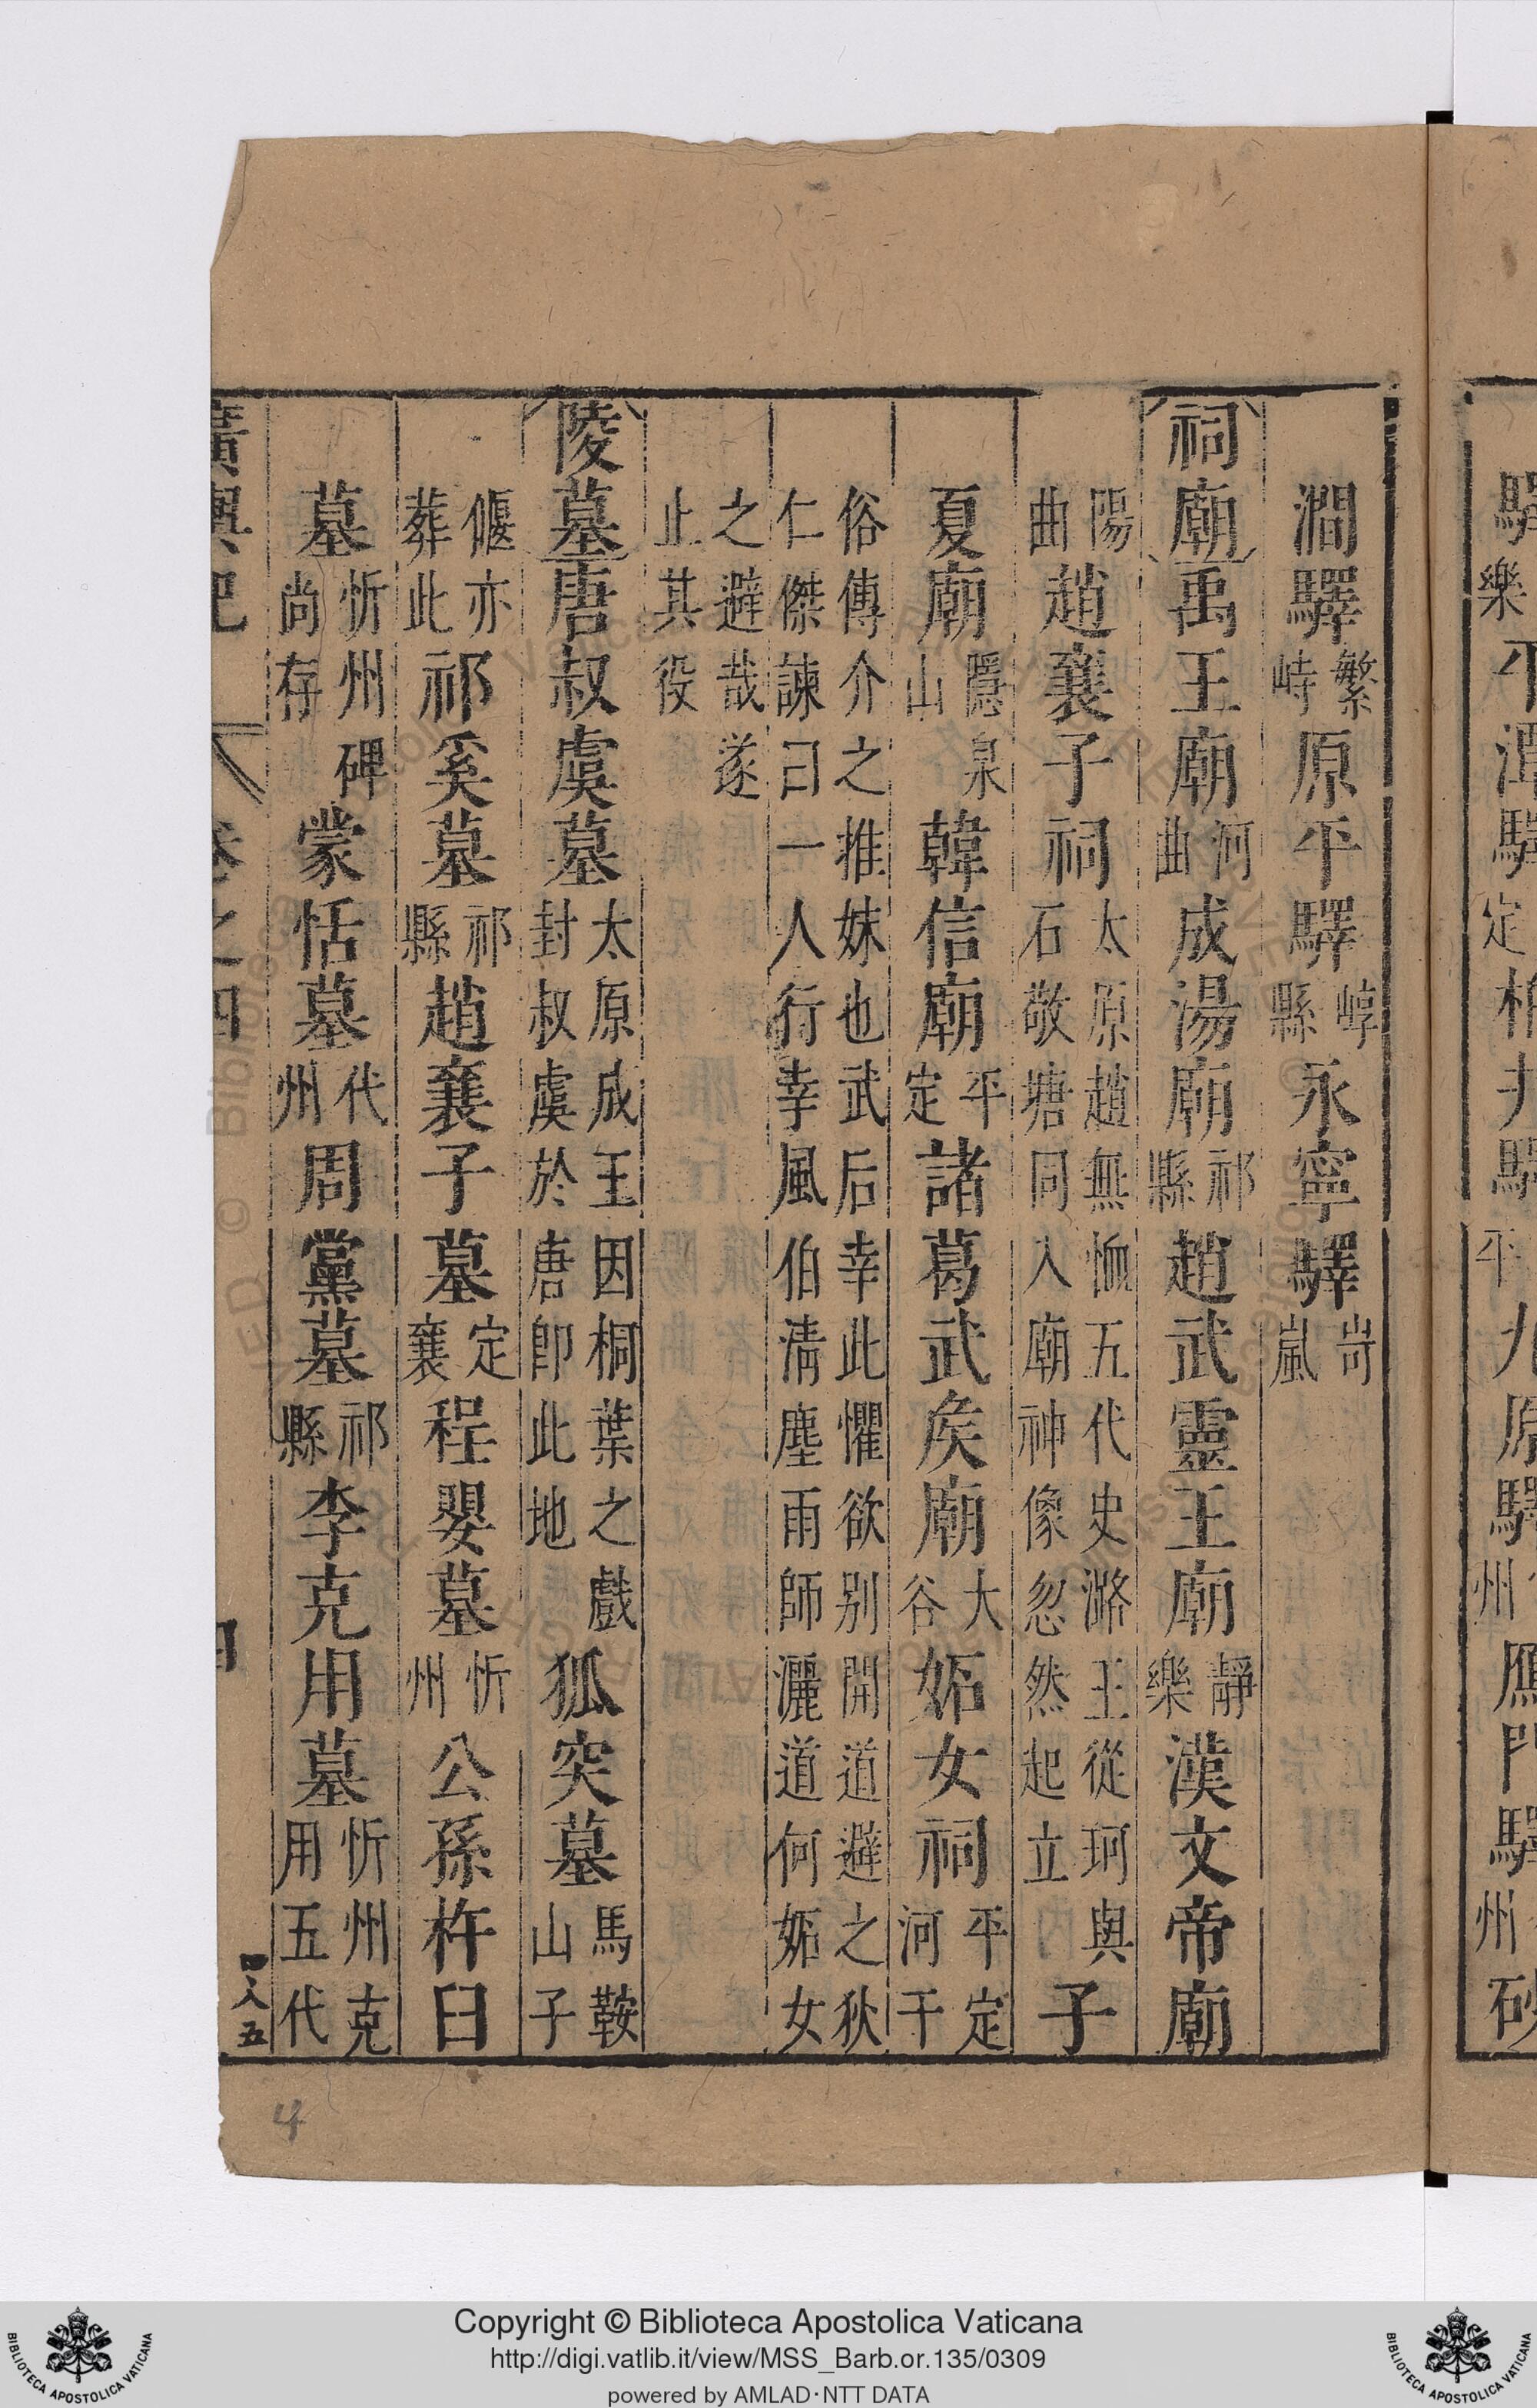 澗驛繁峙原平驛崞縣永寧驛岢嵐
祠廟禹王廟河曲成湯廟祁縣趙武靈王廟靜樂漢文帝廟
陽曲趙襄子祠太原趙無恤五代史潞王從珂與石敬塘同入廟神像忽然起立子
夏廟隱泉山韓信廟平定諸葛武矦廟大谷妬女祠平定河干
俗傳介之推妹也武后幸此懼欲别開道避之狄仁傑諫曰一人行幸風伯清塵雨師灑道何妬女
之避哉遂止其役
陵墓唐叔虞墓太原成王因桐葉之戲封叔虞於唐卽此地狐突墓馬鞍山子
偃亦葬此祁奚墓祁縣趙襄子墓定襄程嬰墓忻州公孫杵臼
墓忻州碑尚存蒙恬墓代州周黨墓祁縣李克用墓忻州克用五代
廣輿記 卷之四
四
八五
4
驛樂平
驛定柏井驛平
九原驛州雁門驛州砂
Copyright © Biblioteca Apostolica Vaticana
http://digi.vatlib.it/view/MSS_Barb.or.135/0309
powered by AMLAD·NTT DATA
BIBLIOTECA APOSTOLICA VATICANA
BIBLIOTECA APOSTOLICA VATICANA